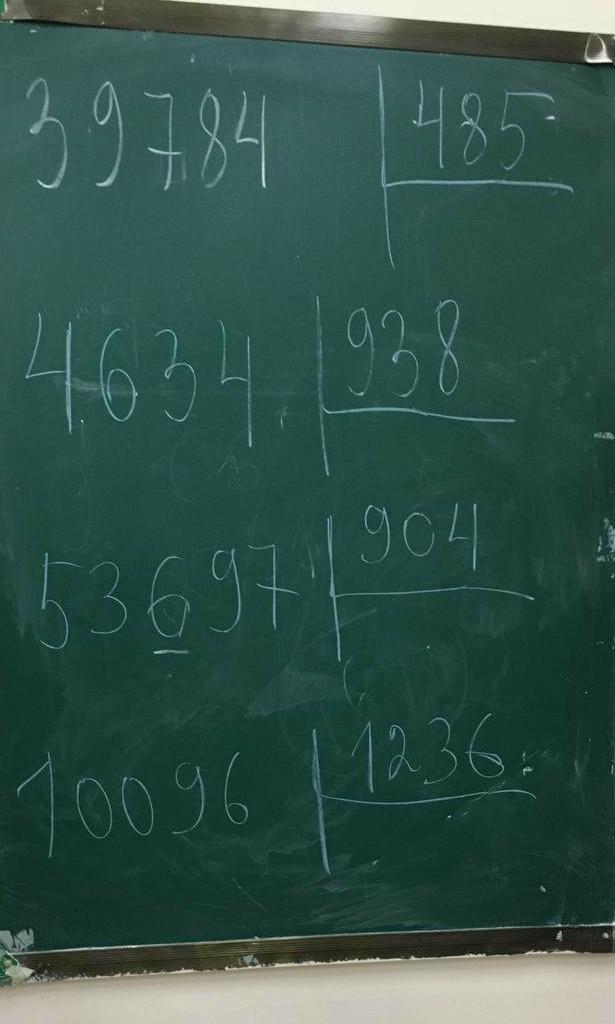 39784 485
4634 938
53697 904
10096 1236